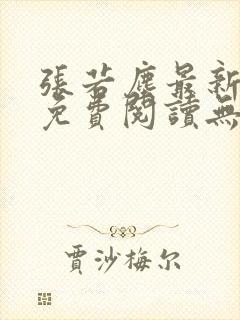 張若塵最新
免費閱讀無
賈沙梅尔